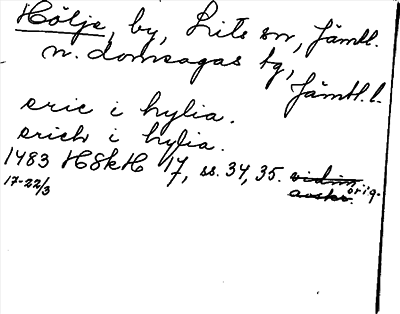 Hölje, by, Lits sn, Jämtl.
n. domsagas tg,
Jämtl. l.
eric i hylia.
erich i hylia.
1483 HSkH 17, ss. 34, 35. vidim. orig.
17-22/3 avskr.